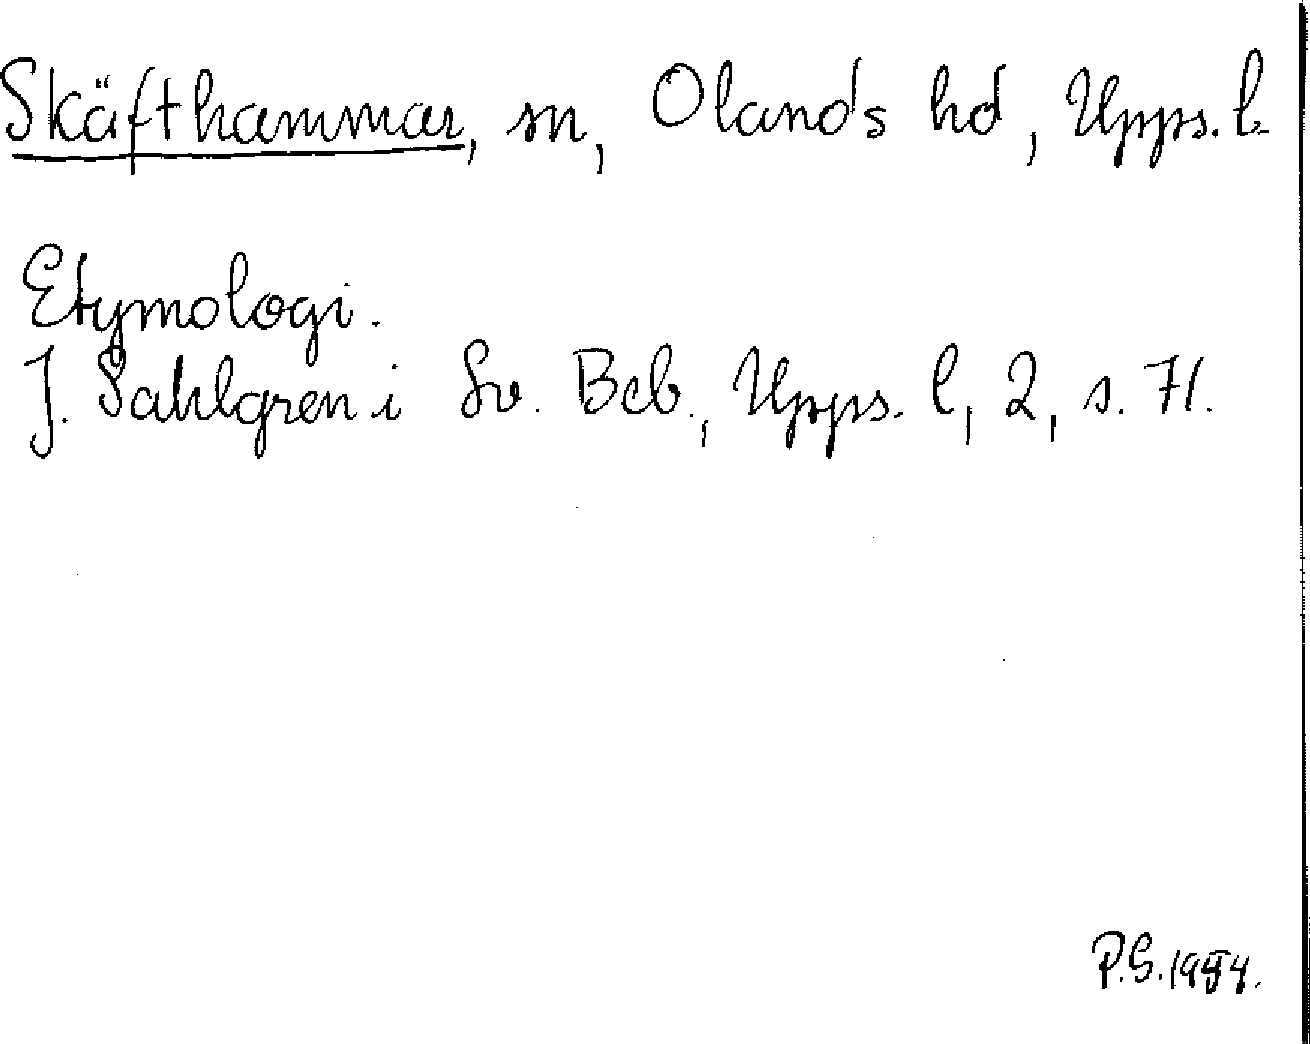 Skäfthammar, sn, Olands hd, Upps. l.
Etymologi.
J. Sahlgren i Sv. Beb., Upps. l, 2, s. 71.
P.S. 1954.